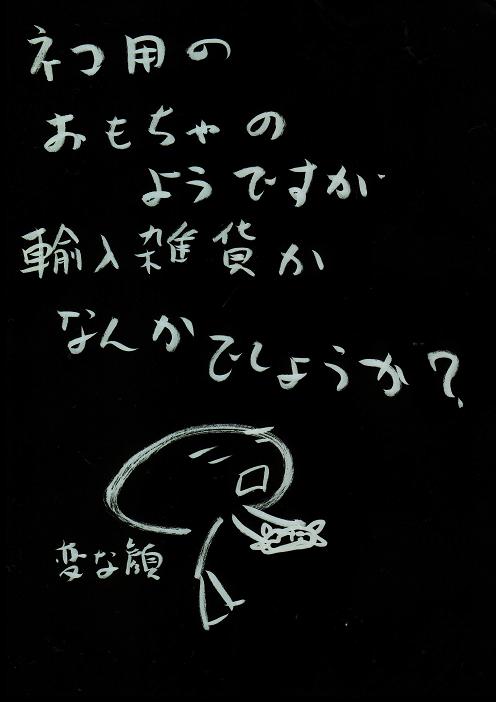 ネコ用の
おもちゃの
ようですが
輸入雑貨か
なんかでしょうか?
変な顔